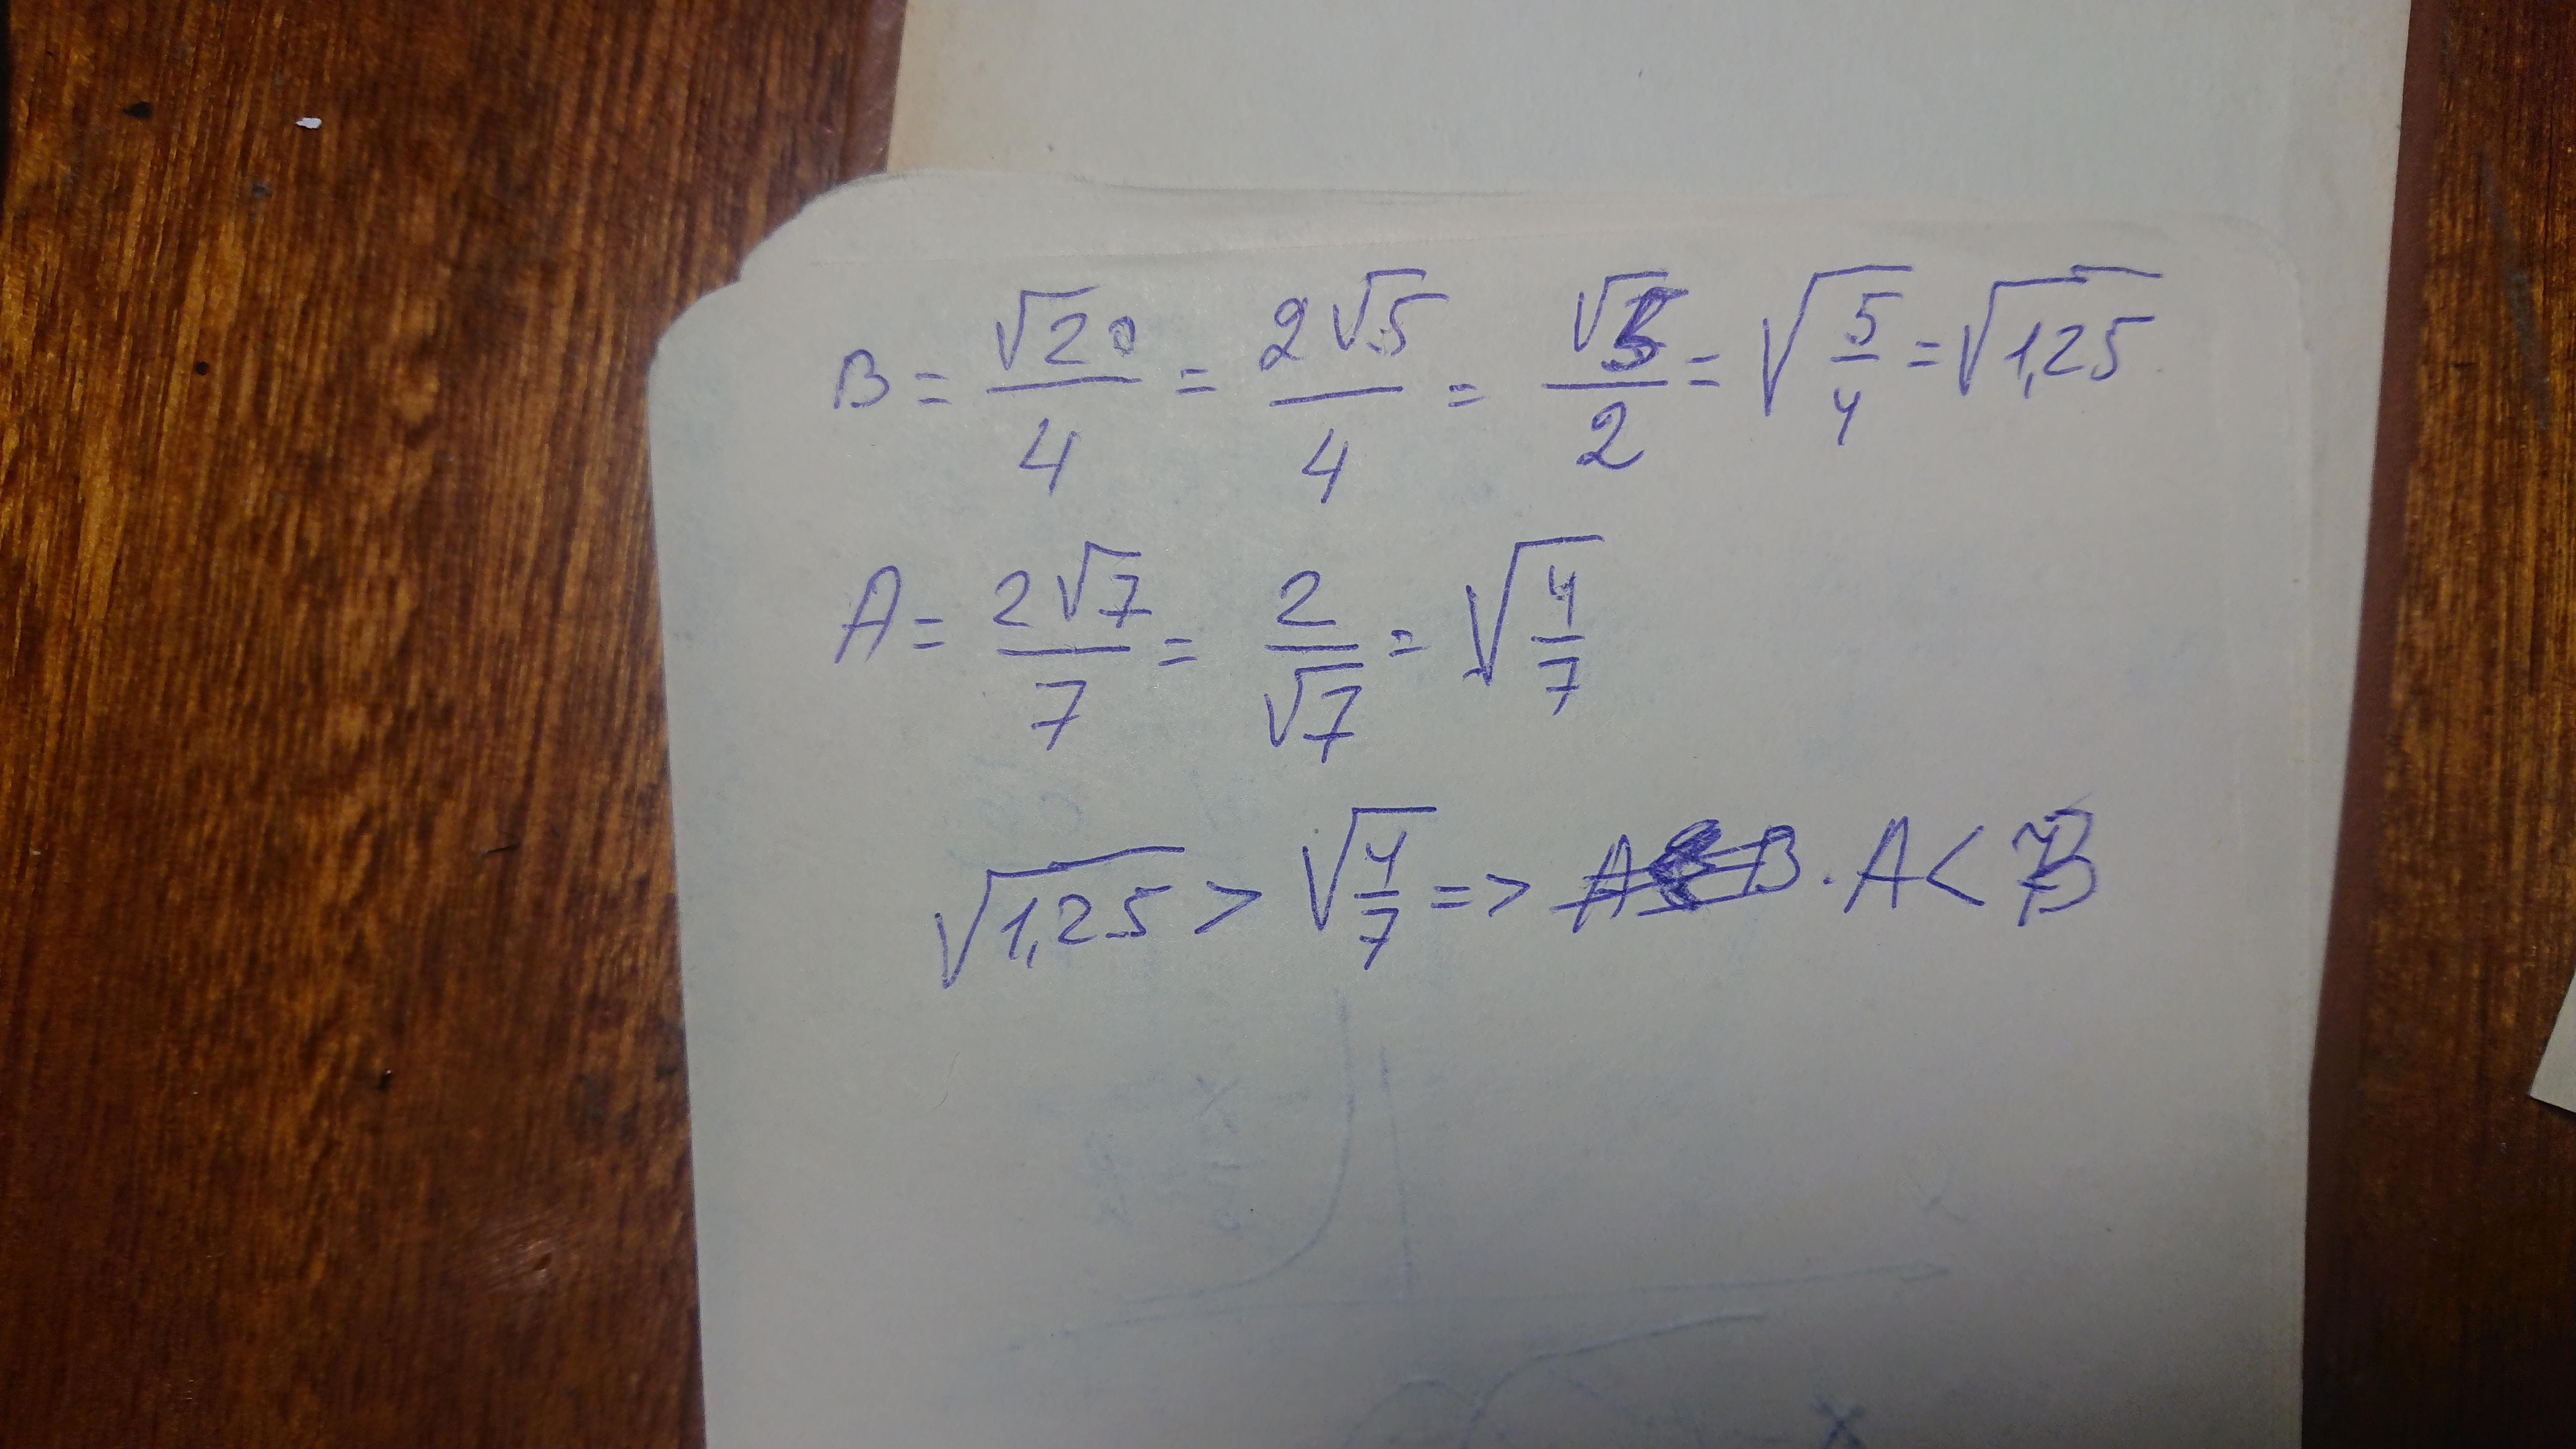 B = √20/4 = 2√5/4 = √5/2 = √5/4 = √1,25
A = 2√7/7 = 2/√7 = √4/7
√1,25 > √4/7 => A B. A < B